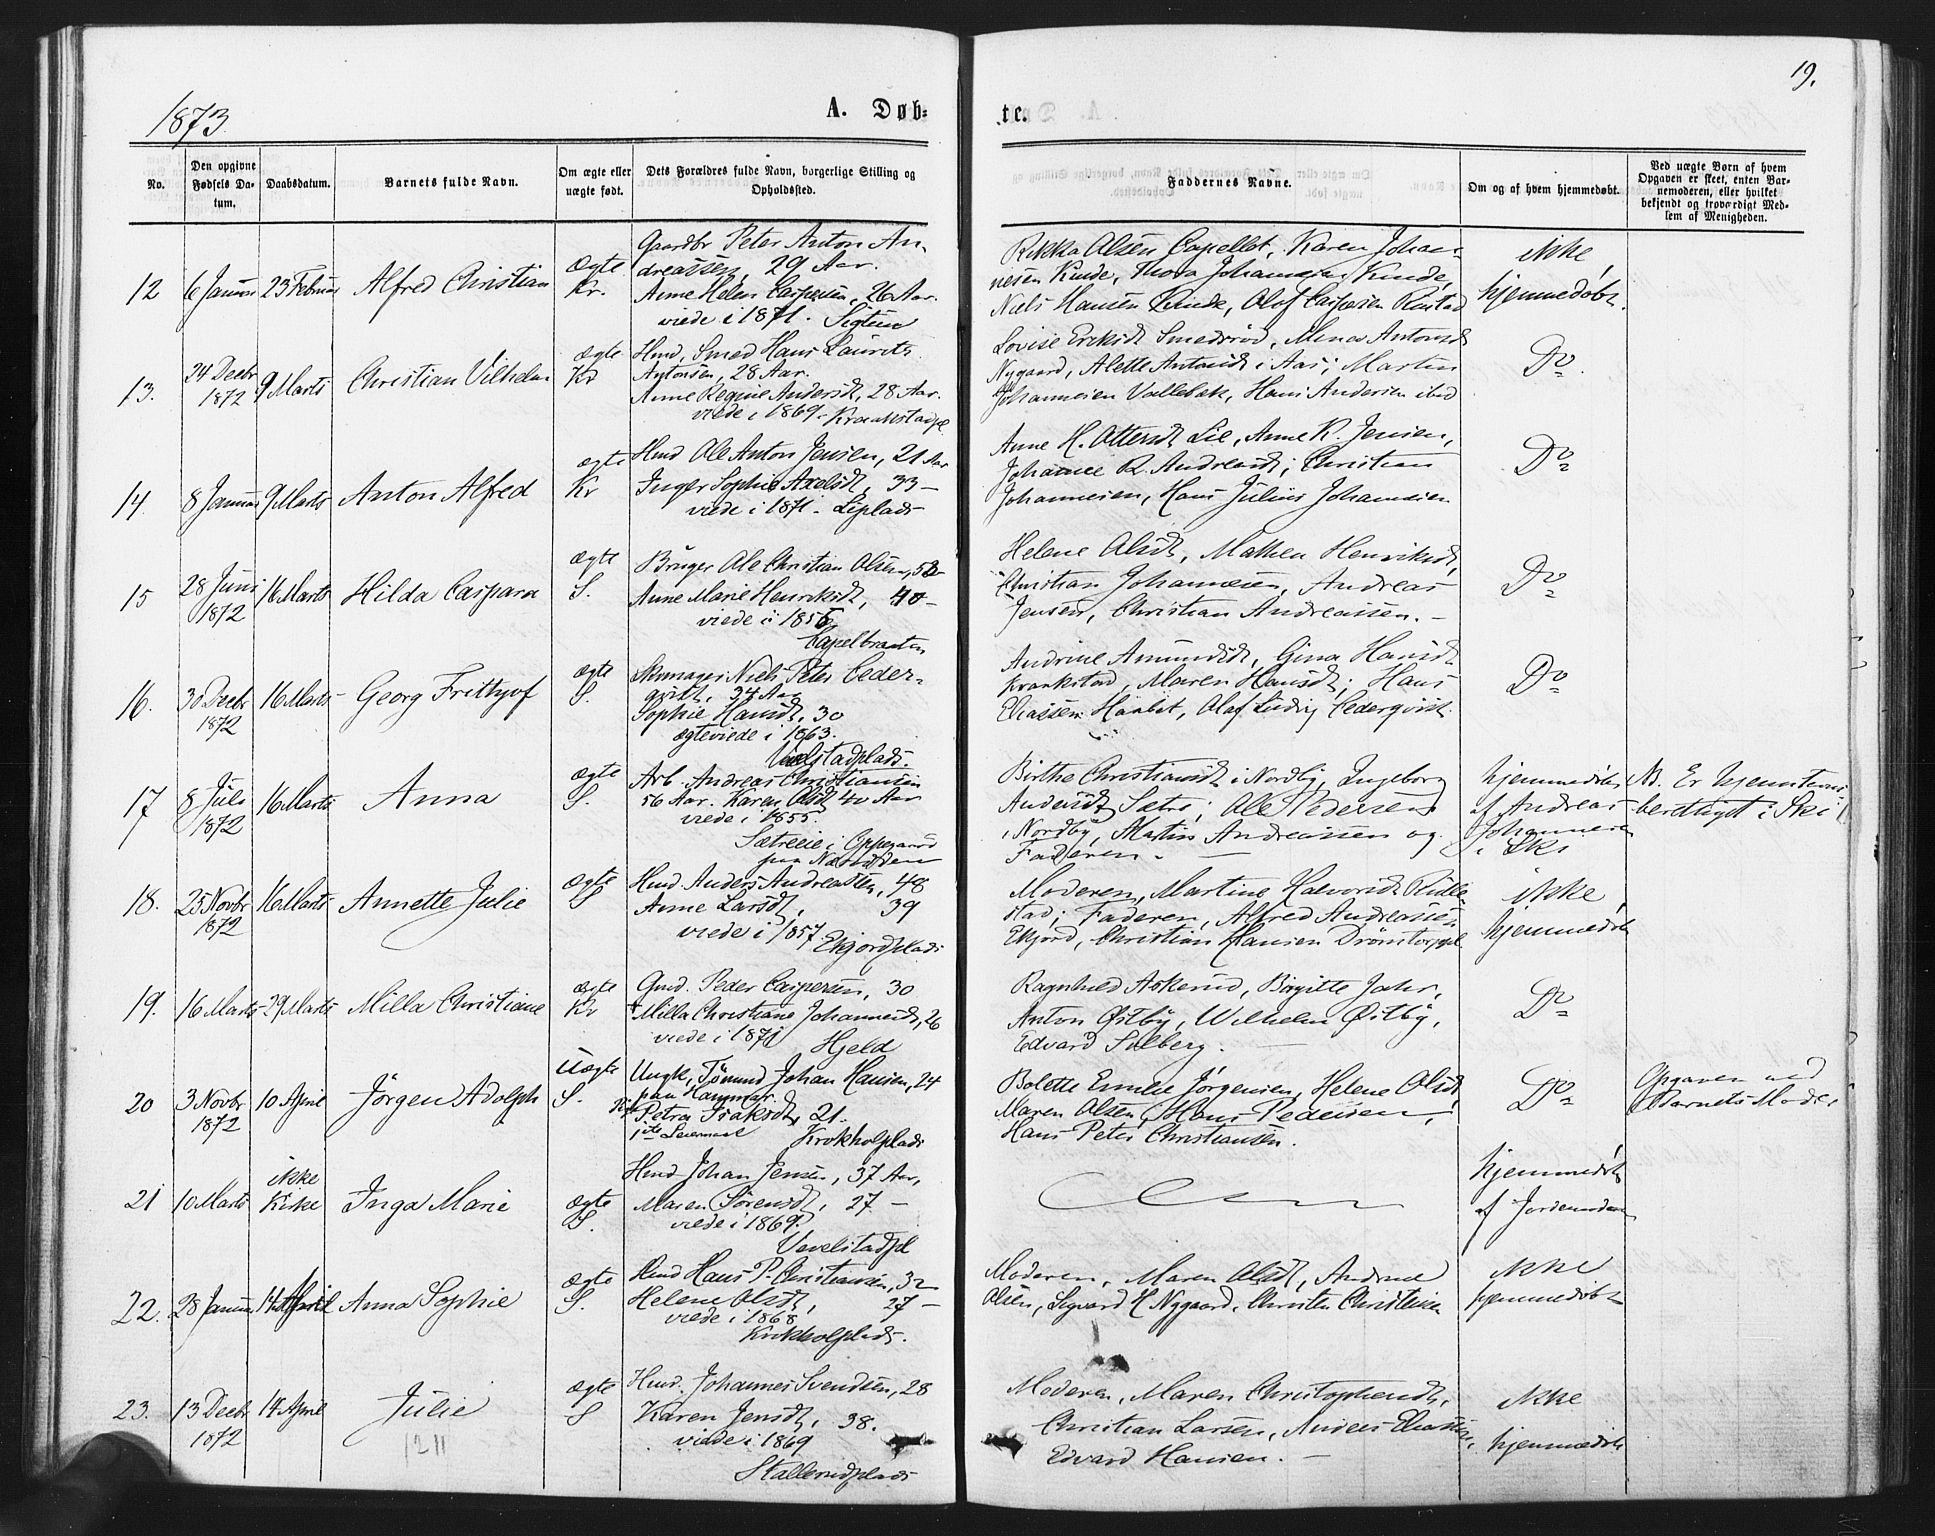 19.
1873
A. Døb-
te.
No.
Den opgivne
Fødsels Da-
tum.
Daabsdatum.
Barnets fulde Navn.
Om ægte eller
uægte født.
Dets Forældres fulde Navn, borgerlige Stilling og
Opholdssted.
Faddernes Navne.
Om og af hvem hjemmedøbt.
Ved uægte Børn af hvem
Opgaven er skeet, enten Bar-
nemoderen, eller hvilket
bekjendt og troværdigt Med-
lem af Menigheden.
12
6 Januar
23 Februar
Alfred Christian
ægte
Kr.
Gaardbr Peter Anton An-
dreassen, 29 Aar.
Anne Helen Caspersen, 26 Aar.
viede i 1871. Sigtun
Rikka Olsen Capellet, Karen Johan-
nesen Kinde, Thora Johannesen Kinde,
Niels Hansen Kinde, Olof Caspersen Rustad
ikke
hjemmedøbt.
13.
24 Decbr
1872
9 Marts
Christian Vilhelm
ægte
Kr
Hmd, Smed Hans Laurits
Antonsen, 28 Aar.
Anne Regine Andersdt, 28 Aar.
viede i 1869. Kraakstadpl
Lovise Eriksdt Smedsrød, Mina Antonsdt
Nygaard, Alette Antonsdt i Aas; Martin
Johannesen Vallebæk, Hans Andersen ibid
Do
14.
8 Januar
9 Marts
Anton Alfred
ægte
Kr
Hmd Ole Anton Jensen, 21 Aar
Inger Sophie Axelsdt, 33 —
viede i 1871. Lieplads
Anne H. Ottersdt Lie, Anne K. Jensen,
Johanne R. Andreasdt; Christian
Johannesen, Hans Julius Johannesen
Do
15
28 Juni
1872
16 Marts
Hilda Caspara
ægte
S.
Bruger Ole Christian Olsen, 52
Anne Marie Henriksdt, 40 —
viede i 1855
Capelbraaten
Helene Olsdt, Mathea Henriksdt,
Christian Johannesen, Andreas
Jensen, Christian Andreassen. —
Do
16.
30 Decbr
1872
16 Marts
Georg Frithjof
ægte
S.
Skomager Niels Peter Ceder-
qvist, 34 Aar
Sophie Hansdt, 30
ægteviede i 1863.
Vevelstadplads.
Andrine Amundsdt, Gina Hansdt
Kraakstad, Maren Hansdt; Hans
Eliassen Haabet, Olaf Ludvig Cederqvist.
Do
17
8 Juli
1872
16 Marts
Anna
ægte
S.
Arb. Andreas Christiansen
56 Aar. Karen Olsdt 40 Aar
viede i 1855.
Sætreeie i Oppegaard
paa Næsodden
Birthe Christiansdt i Nordby, Ingeborg
Andersdt Sætre; Ole Pedersen
i Nordby, Martin Andreassen og
Faderen. —
hjemmedøbt
af Andreas
Johannesen
i Ski
NB. Er hjemstavns-
berettiget i Ski
18.
25 Novbr
1872
16 Marts
Annette Julie
ægte
S
Hmd Anders Andreassen, 48
Anne Larsdt, 39
viede i 1857
Ekjordplads
Moderen, Martine Halvorsdt Rulle-
stad; Faderen, Alfred Andreassen
Ekjord, Christian Hansen Drømtorppl
ikke
hjemmedøbt
19.
16 Marts
29 Marts
Milla Christiane
ægte
Kr
Gmd. Peder Caspersen, 30
Milla Christiane Johannesdt, 26
viede i 1871
Hjeld
Ragnhild Askerud, Birgitte Jahr,
Anton Østby, Wilhelm Østby,
Edvard Solberg.
Do
20
3 Novbr
1872
10 April
Jörgen Adolph
Uægte
S.
Ungk, Tømmd Johan Hansen, 24
paa Hammar
Petra Isaksdt, 21.
1ste Leiermaal
Krokholplads
Bolette Emilie Jørgensen, Helene Olsdt,
Maren Olsen, Hans Pedersen,
Hans Peter Christiansen.
Do
Opgaven ved
Barnets Moder
21
10 Marts
ikke
Kirke
Inga Marie
ægte
S.
Hmd Johan Jensen, 37 Aar,
Maren Sörensdt, 27 —
viede i 1869.
Vevelstadpl
hjemmedøbt
af Jordemoderen
22.
28 Januar
14 April
Anna Sophie
ægte
S.
Hmd Hans P. Christiansen, 32
Helene Olsdt, 27 —
viede i 1868
Krokholplads.
Moderen, Maren Olsdt, Andrine
Olsen, Sigvard H Nygaard, Christen Christensen
ikke
hjemmedøbt
23.
13 Decbr
1872
14 April
Julie
1211
ægte
S
Hmd. Johannes Svendsen, 28
Karen Jensdt, 38.
viede i 1869
Stallerudplads
Moderen, Maren Christophersdt,
Christian Larsen, Anders Eliassen,
Edvard Hansen. —
ikke
hjemmedøbt